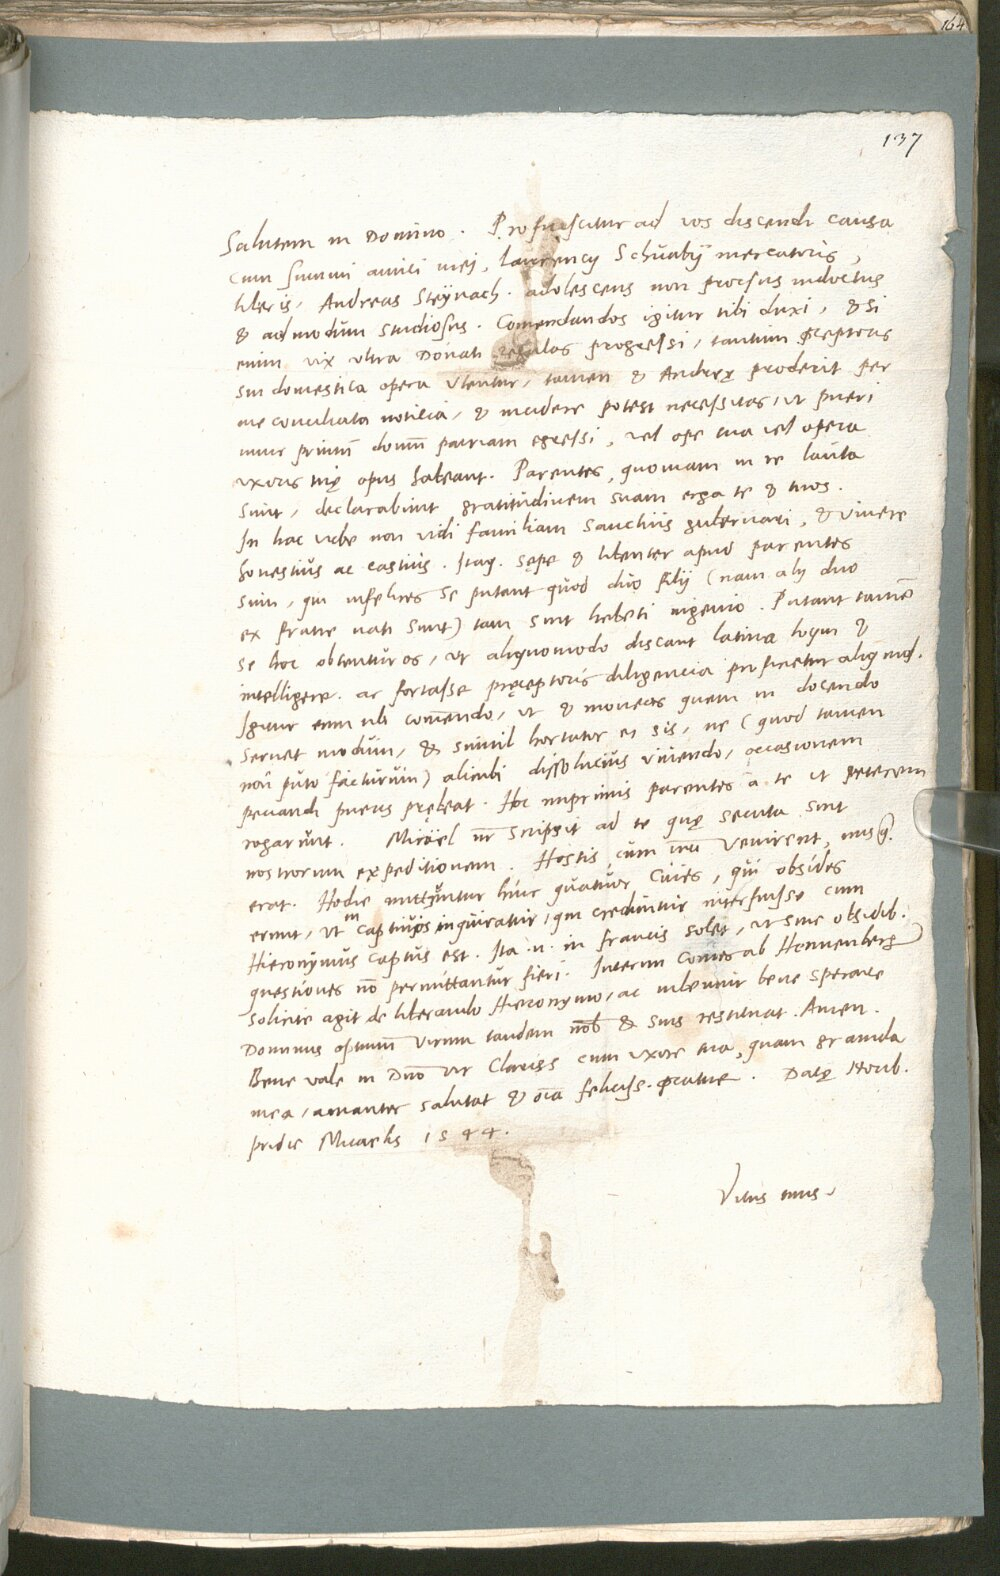 164
137
Salutem in Domino. Proficiscitur ad vos discendi causa
cum summi amici mei, Laurencij Schwabij mercatoris,
liberis, Andreas Steÿnach. adolescens non prorsus indoctus
& admodum studiosus. Comendandos igitur tibi duxi, & si
enim vix ultra Donati regulas progressi, tantum pręceptoris
sui domestica opera utentur, tamen & Andreę proderit per
me conciliata noticia, & incidere potest necessitas, ut pueri
nunc primū domū patriam egressi, vel ope tua vel opera
uxoris tuę opus habeant. Parentes, quoniam in re lauta
sunt, declarabunt gratitudinem suam erga te & tuos.
In hac urbe non vidi familiam sanctius gubernari, & vivere
honestius ac castius. Itaq. sępe & libenter apud parentes
sum, qui infelices se putant quod duo filij (nam alij duo
ex fratre nati sunt) tam sint hebeti ingenio. Putant tamē
se hoc obtenturos, ut aliquomodo discant latina loqui &
intelligere. ac fortasse pręceptoris diligencia proficietur aliquid.
Igitur eum tibi comendo, ut & moneas quem in docendo
servet modum, & simul hortator ei sis, ne (quod tamen
non puto facturum) alicubi dissolucius vivendo, occasionem
peccandi pueris prębeat. Hoc imprimis parentes a te ut peterem
rogarunt. Micaël nr scripsit ad te quę secuta sint
nostrorum expeditionem. Hostis, cum venirent, nusq̄
erat. Hodie mittuntur huc quatuor cives, qui obsides
erunt, ut in captivos inquiratur, qui creduntur interfuisse cum
Hieronymus captus est. Ita .n. in francis solet, ut sine obsidib.
questiones nō permittantur fieri. Interim Comes ab Hennenberg
solicite agit de liberando Hieronymo, ac iubemur bene sperare
Dominus optimū virum tandem nob & suis restituat. Amen.
Bene vale in Dnō vir Clariss cum uxore tua, quam gravida
mea, amanter salutat & oīa feliciss. pcatur. Datę Norib.
pridie Micaelis 1544.
Vitus tuus.